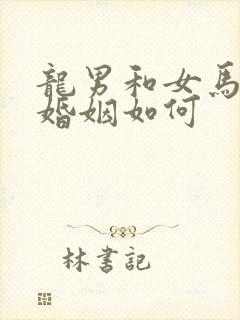 龍男和女馬
婚姻如何
林書記